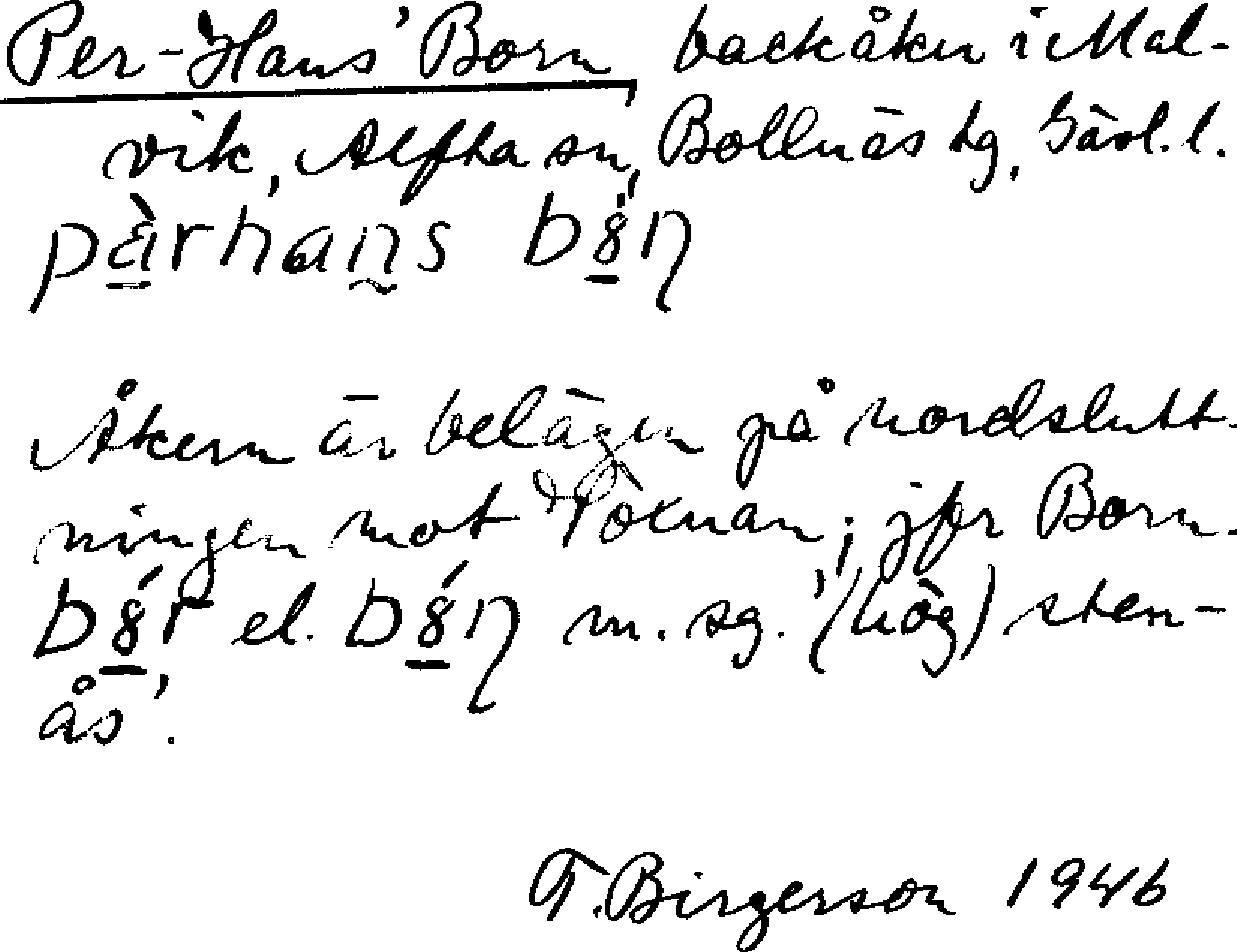 Per-Hans' Born, backåker i Mal-
vik, Alfta sn, Bollnäs tg, Gävl. l.
pàrhans b8́ɳ
Åkern är belägen på nordslutt-
ningen mot Voxnan; jfr Born.
b8́r el. b8́ɳ m. sg. '(hög) sten-
ås'.
T. Birgerson 1946